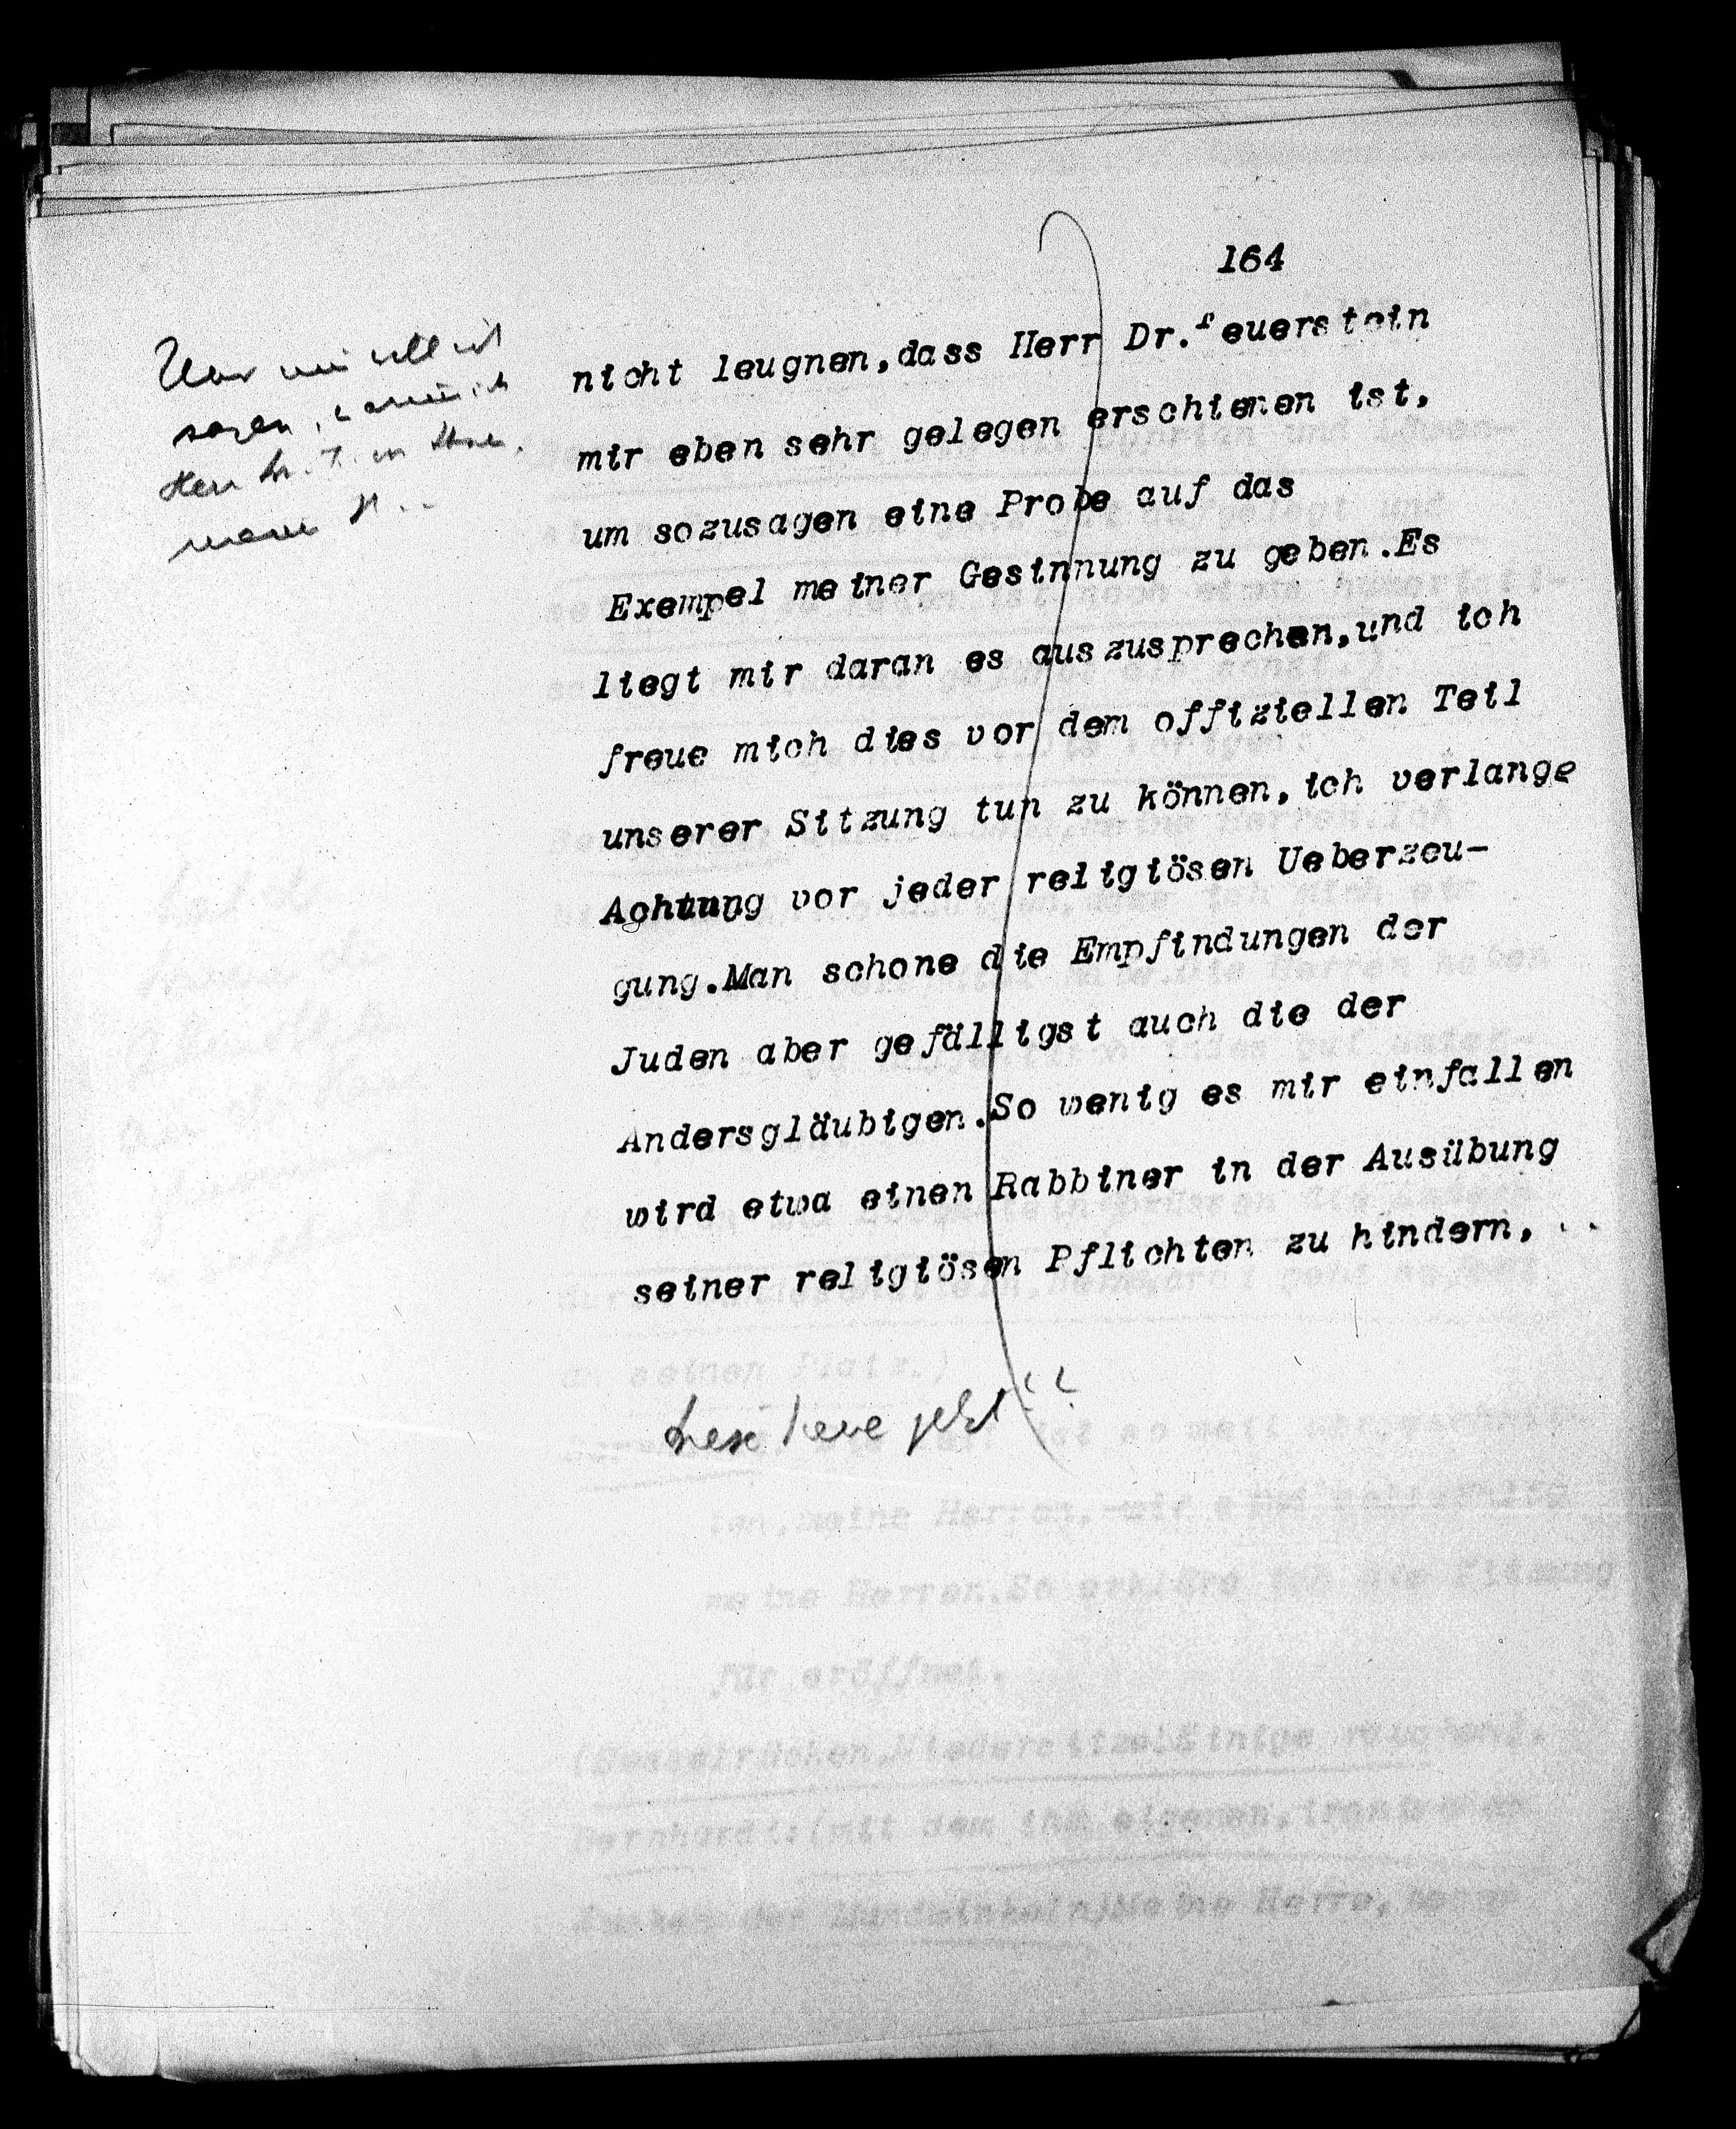 164
nicht leugnen,dass Herr Dr.feuerstein
mir eben sehr gelegen erschienen ist,
um sozusagen eine Probe auf das
Exempel meiner Gesinnung zu geben.Es
liegt mir daran es auszusprechen,und ich
freue mich dies vor dem offiziellen Teil
unserer Sitzung tun zu können,ich verlange
Achtung vor jeder religiösen Ueberzeu-
gung.Man schone die Empfindungen der
Juden aber gefälligst auch die der
Andersgläubigen.So wenig es mir einfallen
wird etwa einen Rabbiner in der Ausübung
seiner religiösen Pflichten zu hindern, ..
sagen,
Herr Dr. F.